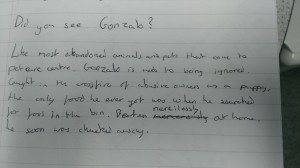 Did you see Gonzalo?
Like most abandoned animals and pets that come to
petcare centre. Gonzalo is used to being ignored.
Caught in the crossfire of abusive owners as a puppy,
the only food he ever got was when he searched
for food in the bin. Beaten mercilessly at home,
he soon was chucked away.